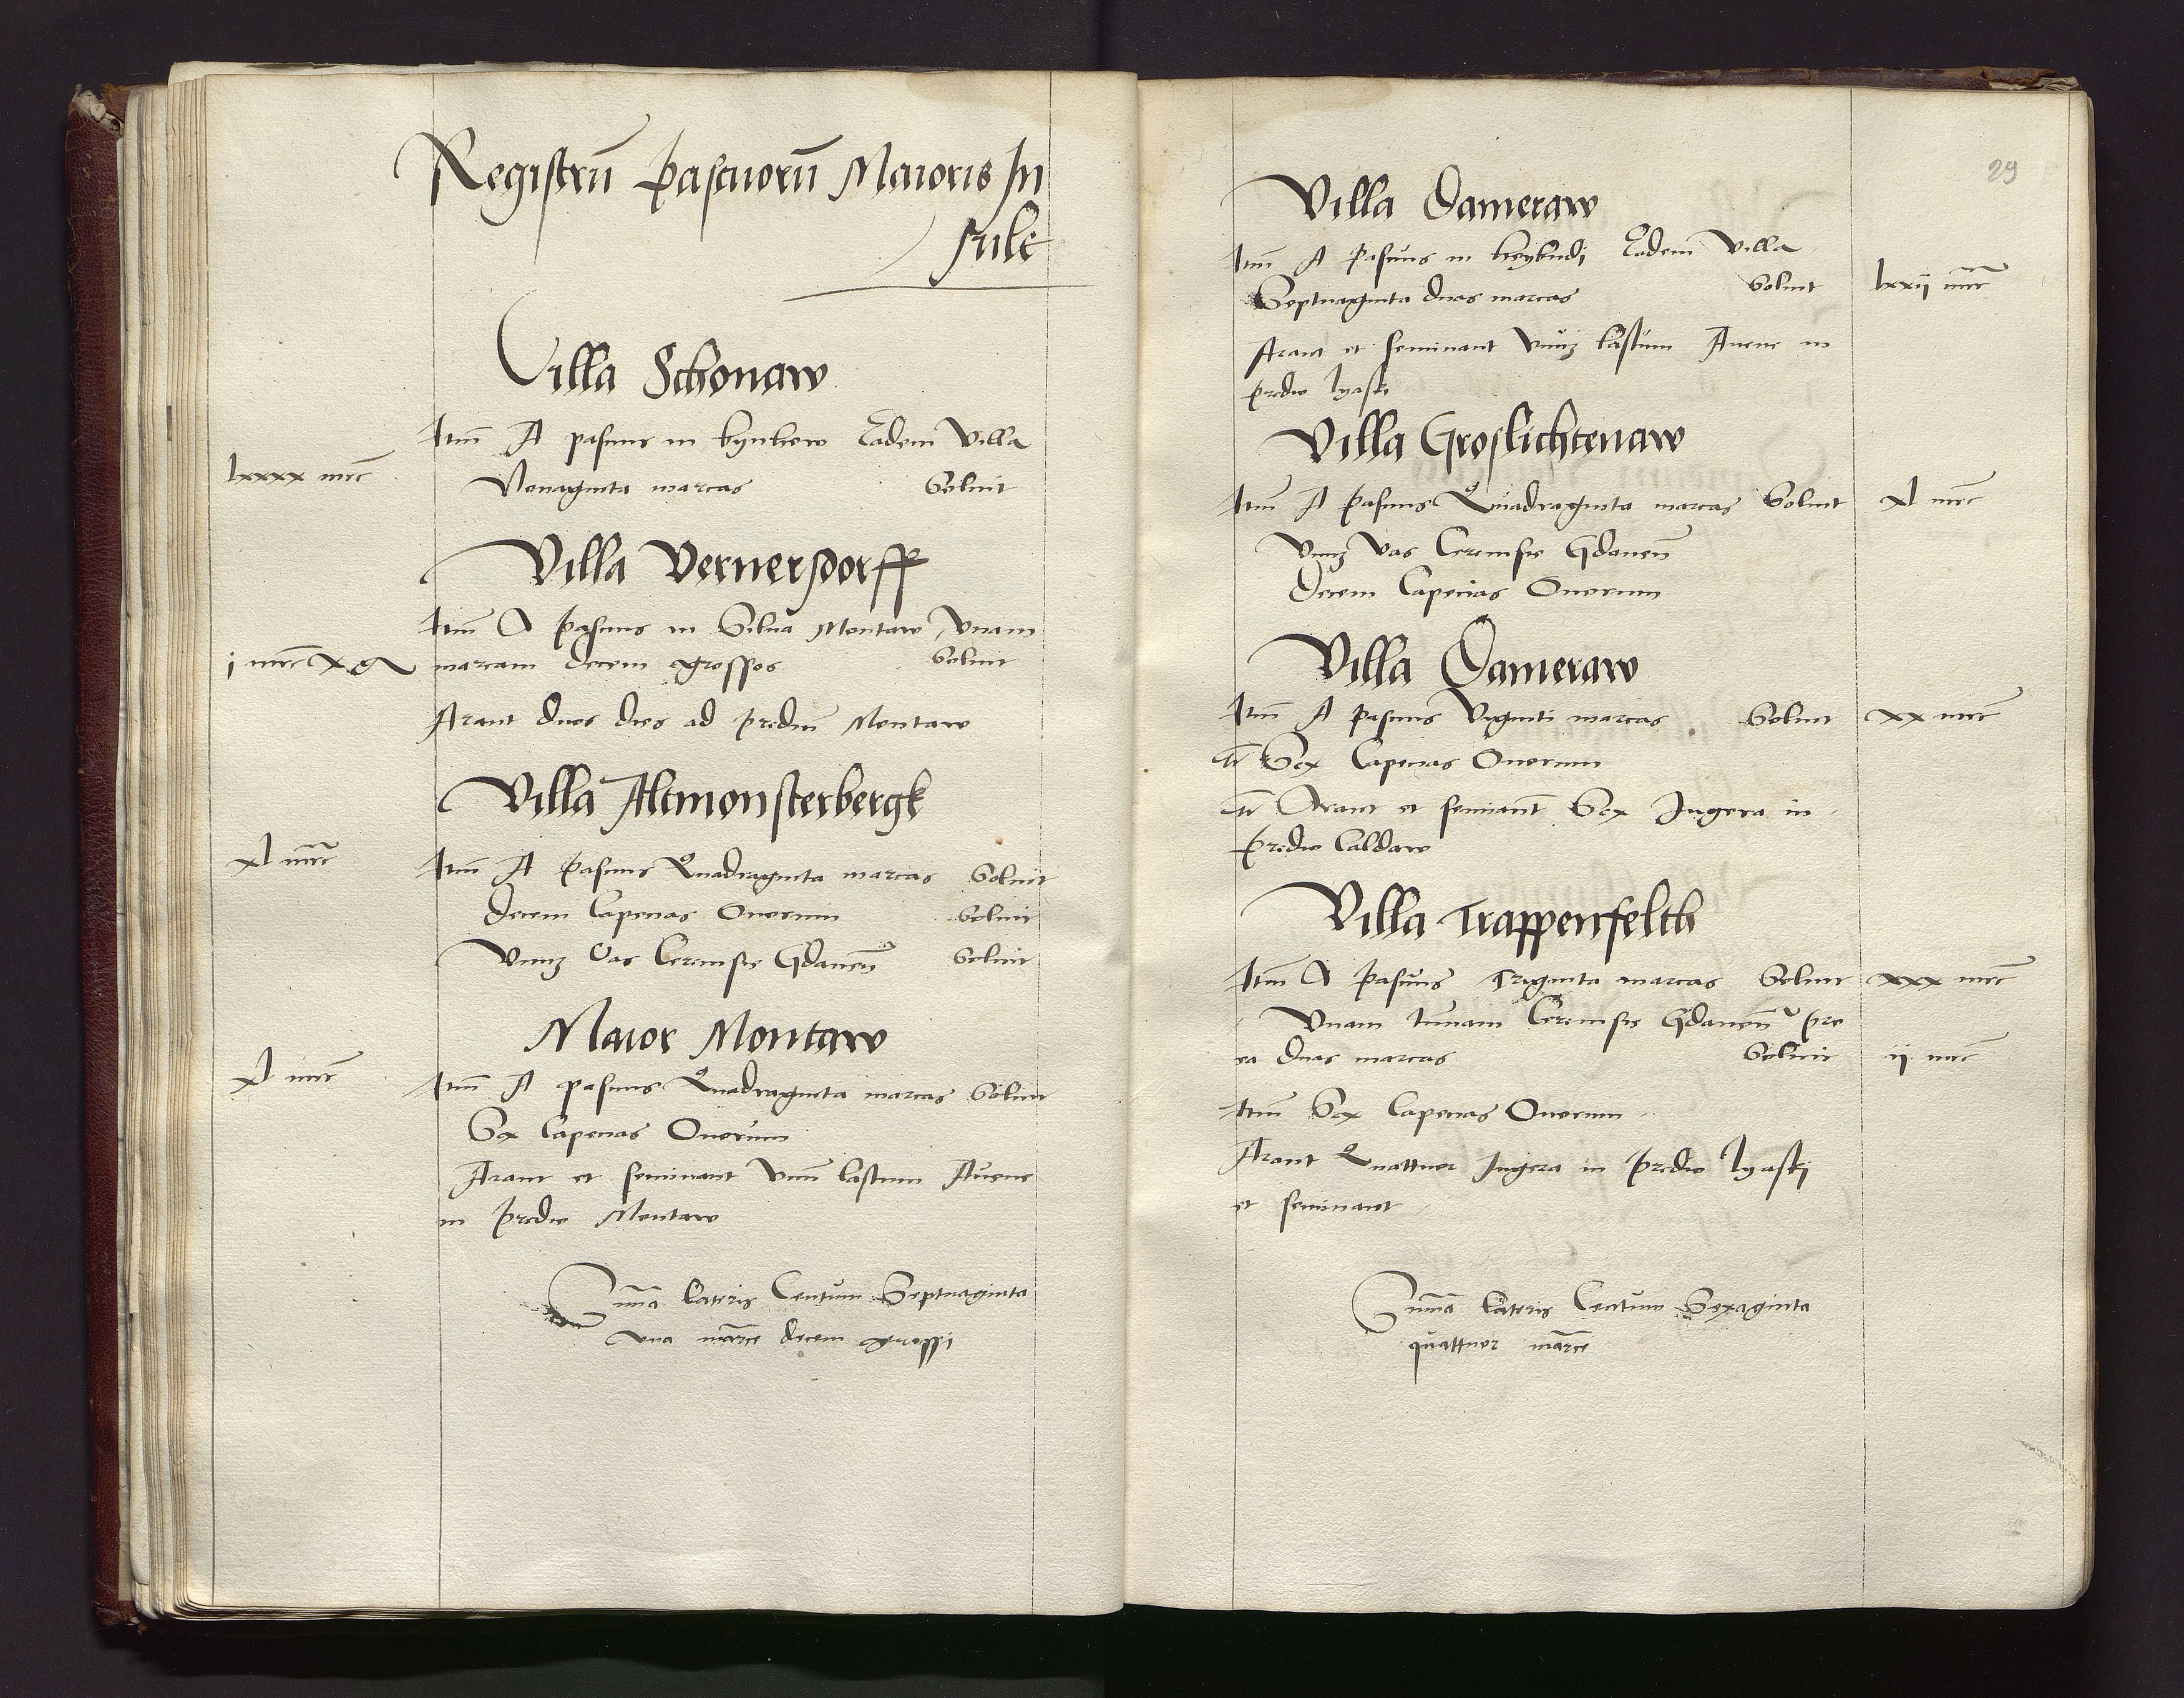 Registrū pascuorū Maioris In
sule
Villa Schonaw
Itm̄ A pascuis in kynkew Eadem Villa
lxxxx mrc Nonaginta marcas Soluit
Villa Vernersdorff
Itm̄ A Pascuis in Silua Montaw Vnam
j mrc x g marcam decem grossos Soluit
Arant duos dies ad prediū Montaw
Villa Altmonsterbergk
xl mrc Itm̄ A Pascuis Quadraginta marcas Soluit
Decem Capecias Ouorum Soluit
Vnuꝫ Vas Ceruisie Gdaneñ Soluit
Maior Montaw
xl mrc Itm̄ A pascuis Quadraginta marcas Soluit
Sex Capecias Ouorum
Arant et seminant Vnū lastum Auene
in predio Montaw
Sum̄a Lateris Centum Septuaginta
vna marce decem grossi
29
Villa Dameraw
Itm̄ A Pascuis in Eadem Villa
Septuaginta duas marcas Soluit lxxij mrc
Arant et seminant Vnuꝫ lastum Auene in
predio lyaski
Villa Groslichtenaw
Itm̄ A Pascuis Quadraginta marcas Soluit xl mrc
Vnuꝫ Vas Ceruisie Gdaneñ
Decem Capecias Ouorum
Villa Dameraw
Itm̄ A Pascuis Viginti marcas Soluit xx mrc
It̄ Sex Capecias Ouorum
It̄ Arant et seminant Sex Jugera in
predio Caldaw
Villa Trappenfelth
Itm̄ A Pascuis Triginta marcas Soluit xxx mrc
Vnam tunnam Ceruisie Gdaneñ pro
ea duas marcas Soluit ij mrc
Itm̄ Sex Capecias Ouorum
Arant Quattuor Jugera in predio lyaskj
et seminant
Sum̄a Lateris Centum Sexaginta
quattuor marce